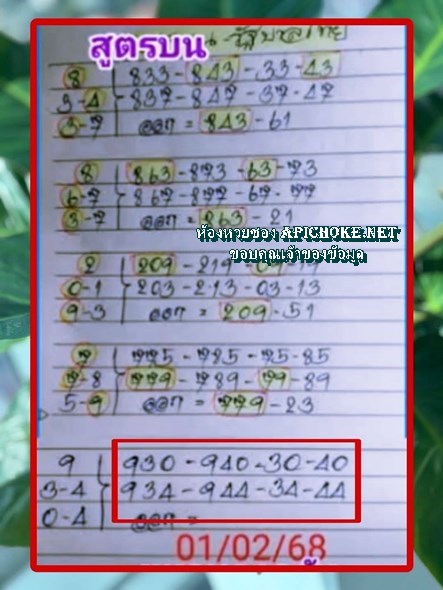 สูตรบน
8 833-843-33-43
3-4 837-847-37-47
3-7 ออก = 843-61
8 863-873-63-73
6-7 867-877-67-77
3-7 ออก = 863-21
ห้องหวยซอง APICHOKE.NET
ขอบคุณเจ้าของข้อมูล
2 209-219-09-19
0-1 203-213-03-13
9-3 ออก = 209-51
7 775-785-75-85
7-8 779-789-79-89
5-9 ออก = 779-23
9 930-940-30-40
3-4 934-944-34-44
0-4 ออก =
01/02/68